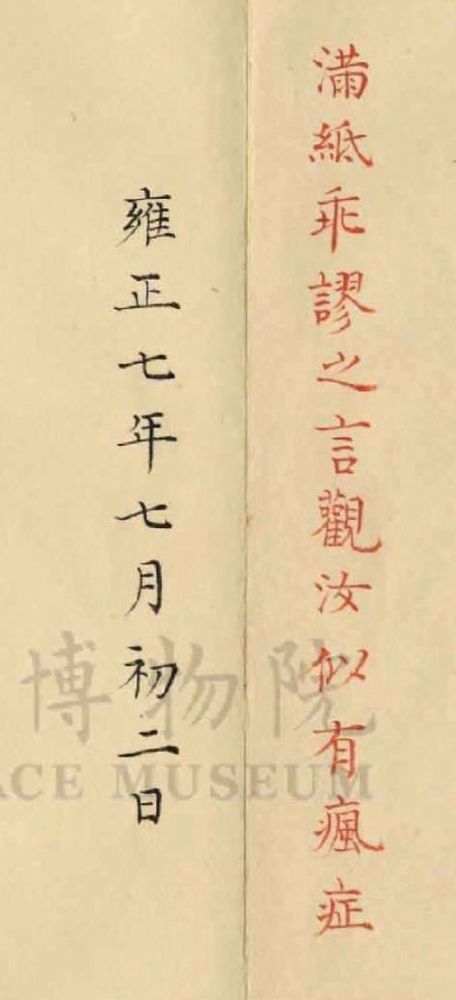 滿紙乖謬之言觀汝似有瘋症
雍正七年七月初二日
博物院
ACE MUSEUM